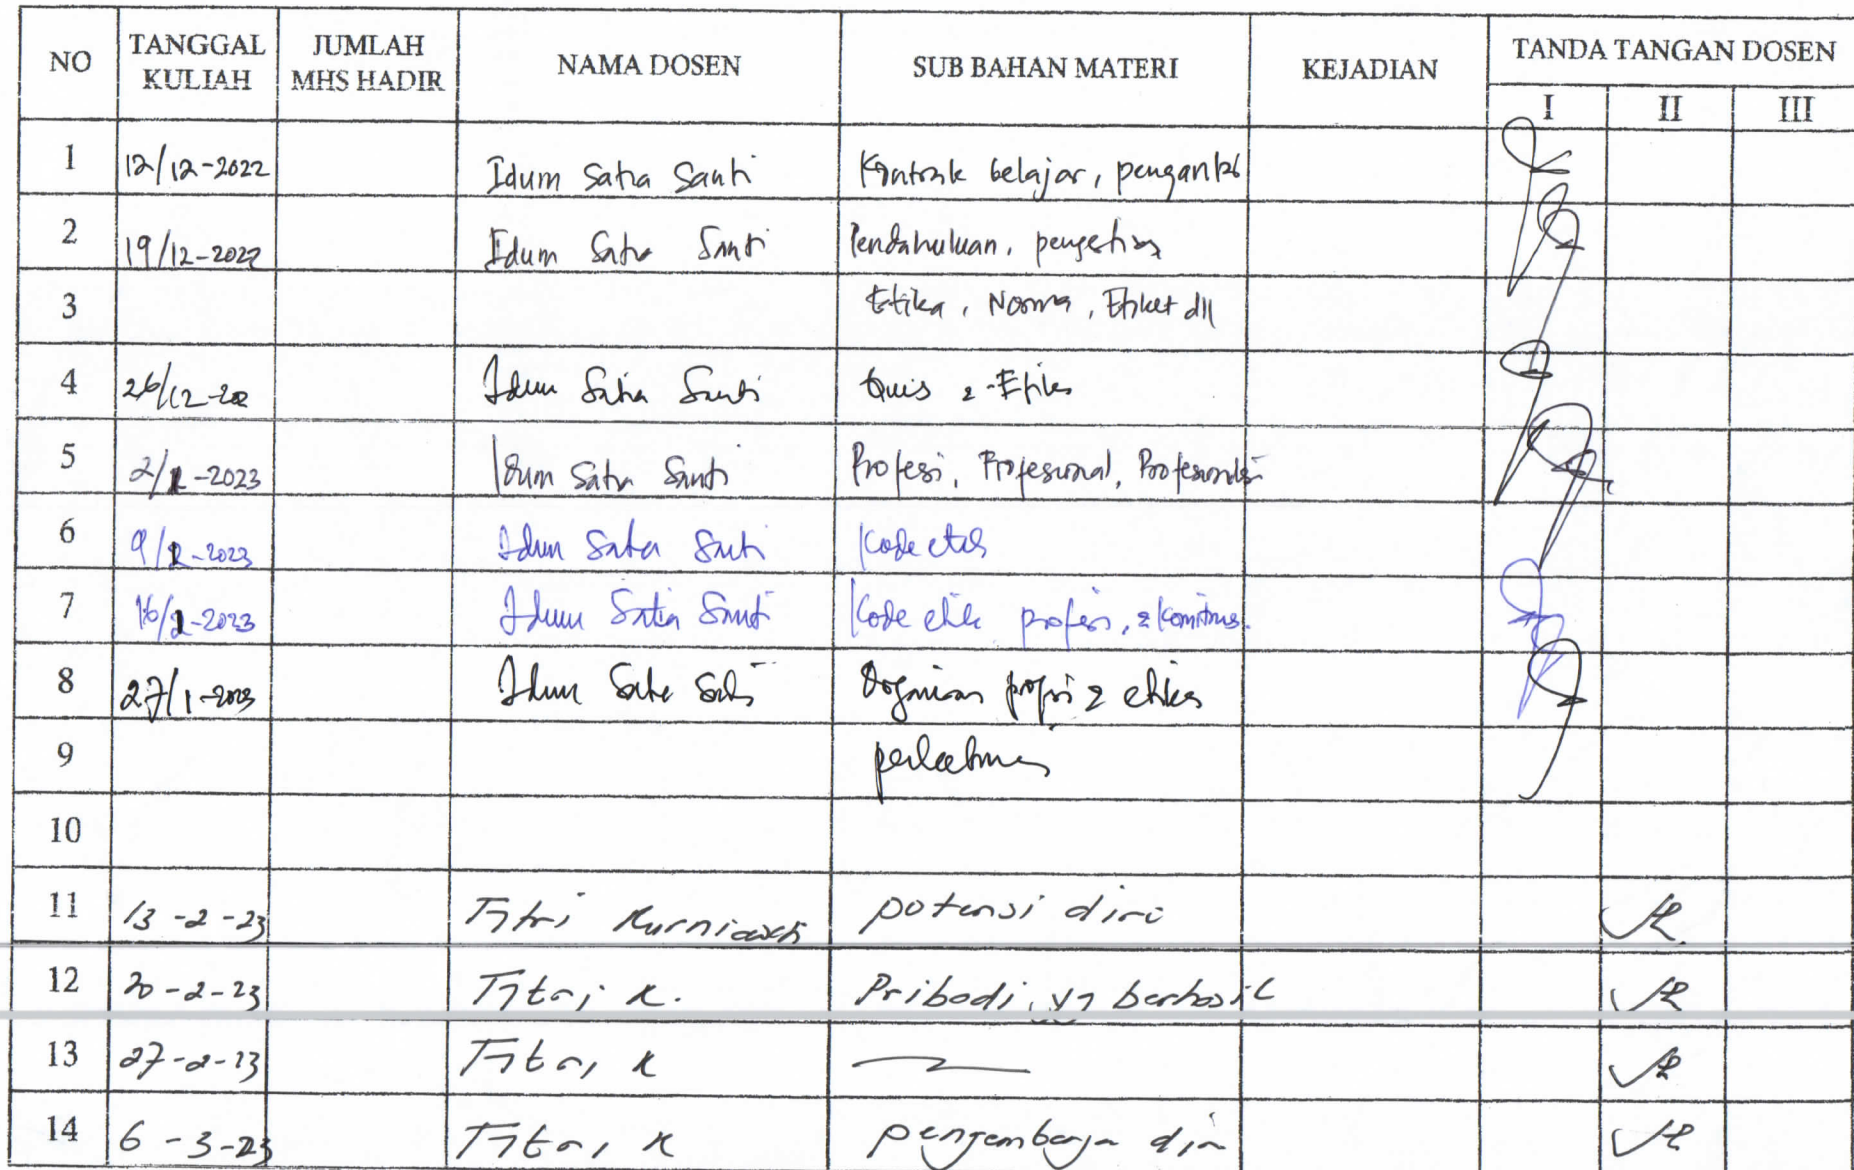 NO TANGGAL KULIAH JUMLAH MHS HADIR NAMA DOSEN SUB BAHAN MATERI KEJADIAN TANDA TANGAN DOSEN
I II III
1 12/12-2022 Idum Satia Santi Kontrak belajar, pengantar
2 19/12-2022 Idum Satia Santi Pendahuluan, pengertian
3 Etika, Norma, Etiket dll
4 26/12-22 Idum Satia Santi Quis 2 - Etika
5 2/1-2023 Idum Satia Santi Profesi, Profesional,
6 9/1-2023 Idum Satia Santi Kode etik
7 16/1-2023 Idum Satia Santi Kode etik profesi,
8 27/1-2023 Idum Satia Santi etika
9
10
11 13-2-23 Fitri Kurniawati potensi diri
12 20-2-23 Fitri K. Pribadi yg berhasil
13 27-2-23 Fitri K
14 6-3-23 Fitri K diri